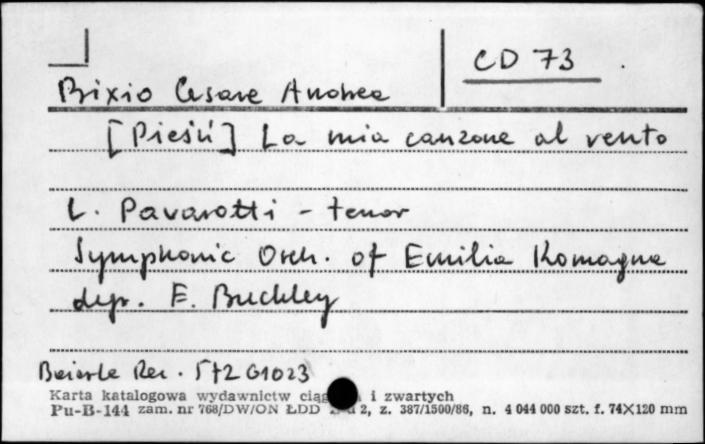 CD 73
Bixio Cesare Andrea
[Pieśń] La mia canzone al vento
L. Pavarotti - tenor
Symphonic Orch. of Emilia Romagna
dyr. E. Buckley
Rec. 572 G1023
Karta katalogowa wydawnictw i zwartych
Pu-B-144 zam. nr 768/DW/ON ŁDD 2, z. 387/1500/86, n. 4 044 000 szt. f. 74X120 mm